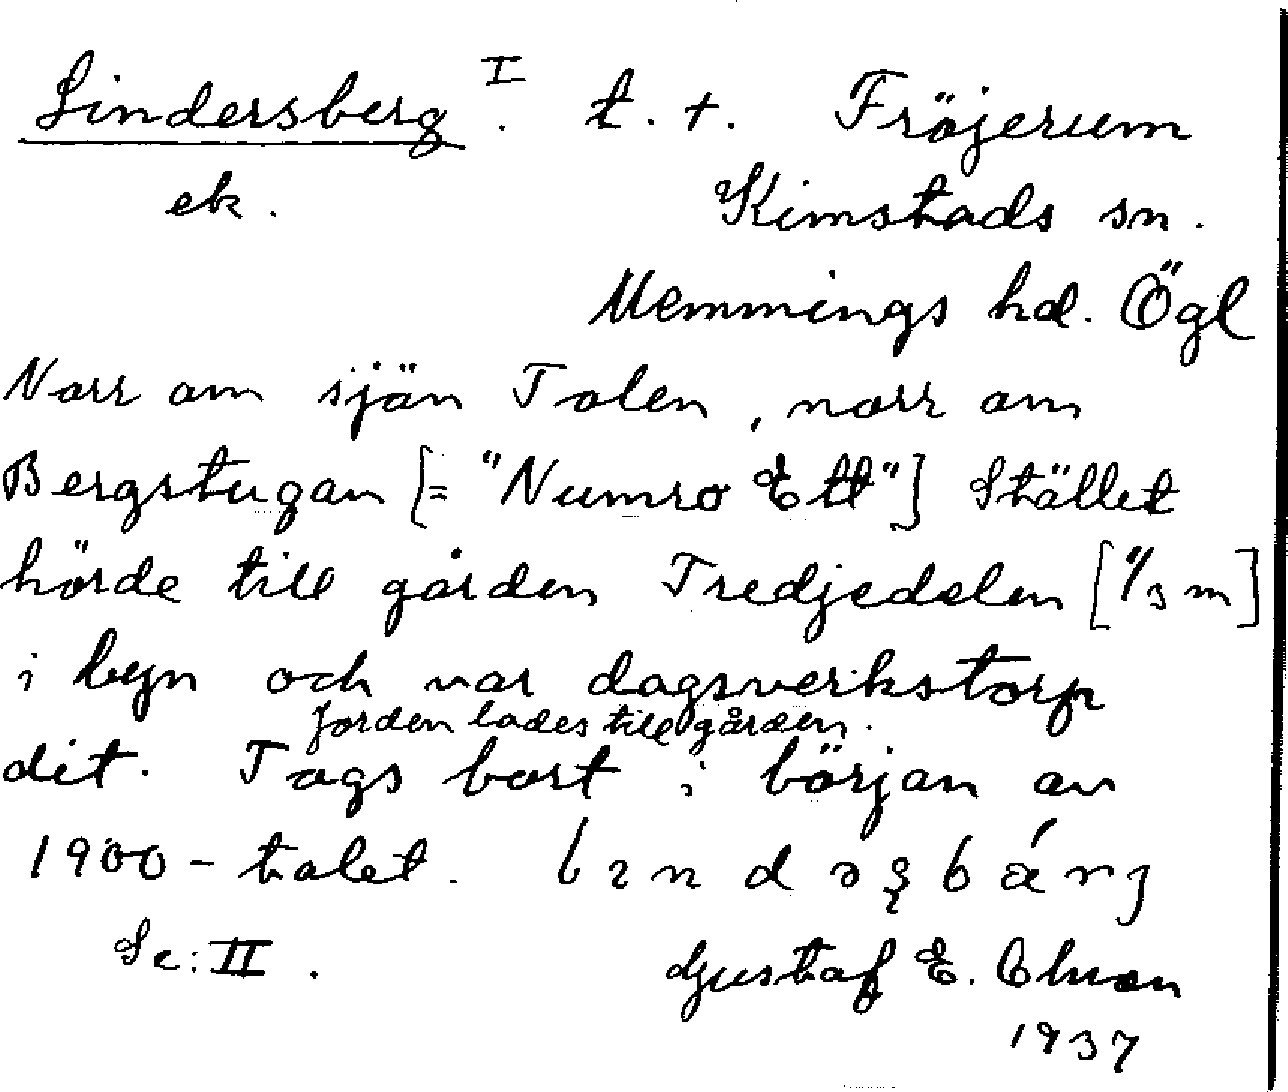 Lindersberg I. t. +. Fröjerum
ek. Kimstads sn.
Memmings hd. Ögl
Norr om sjön Tolen, norr om
Bergstugan [= "Numro Ett"] Stället
hörde till gården Tredjedelen [1/3 m]
i byn och var dagsverkstorp
Jorden lades till gården.
dit. Togs bort i början av
1900-talet.
Se: II. Gustaf E.
1937